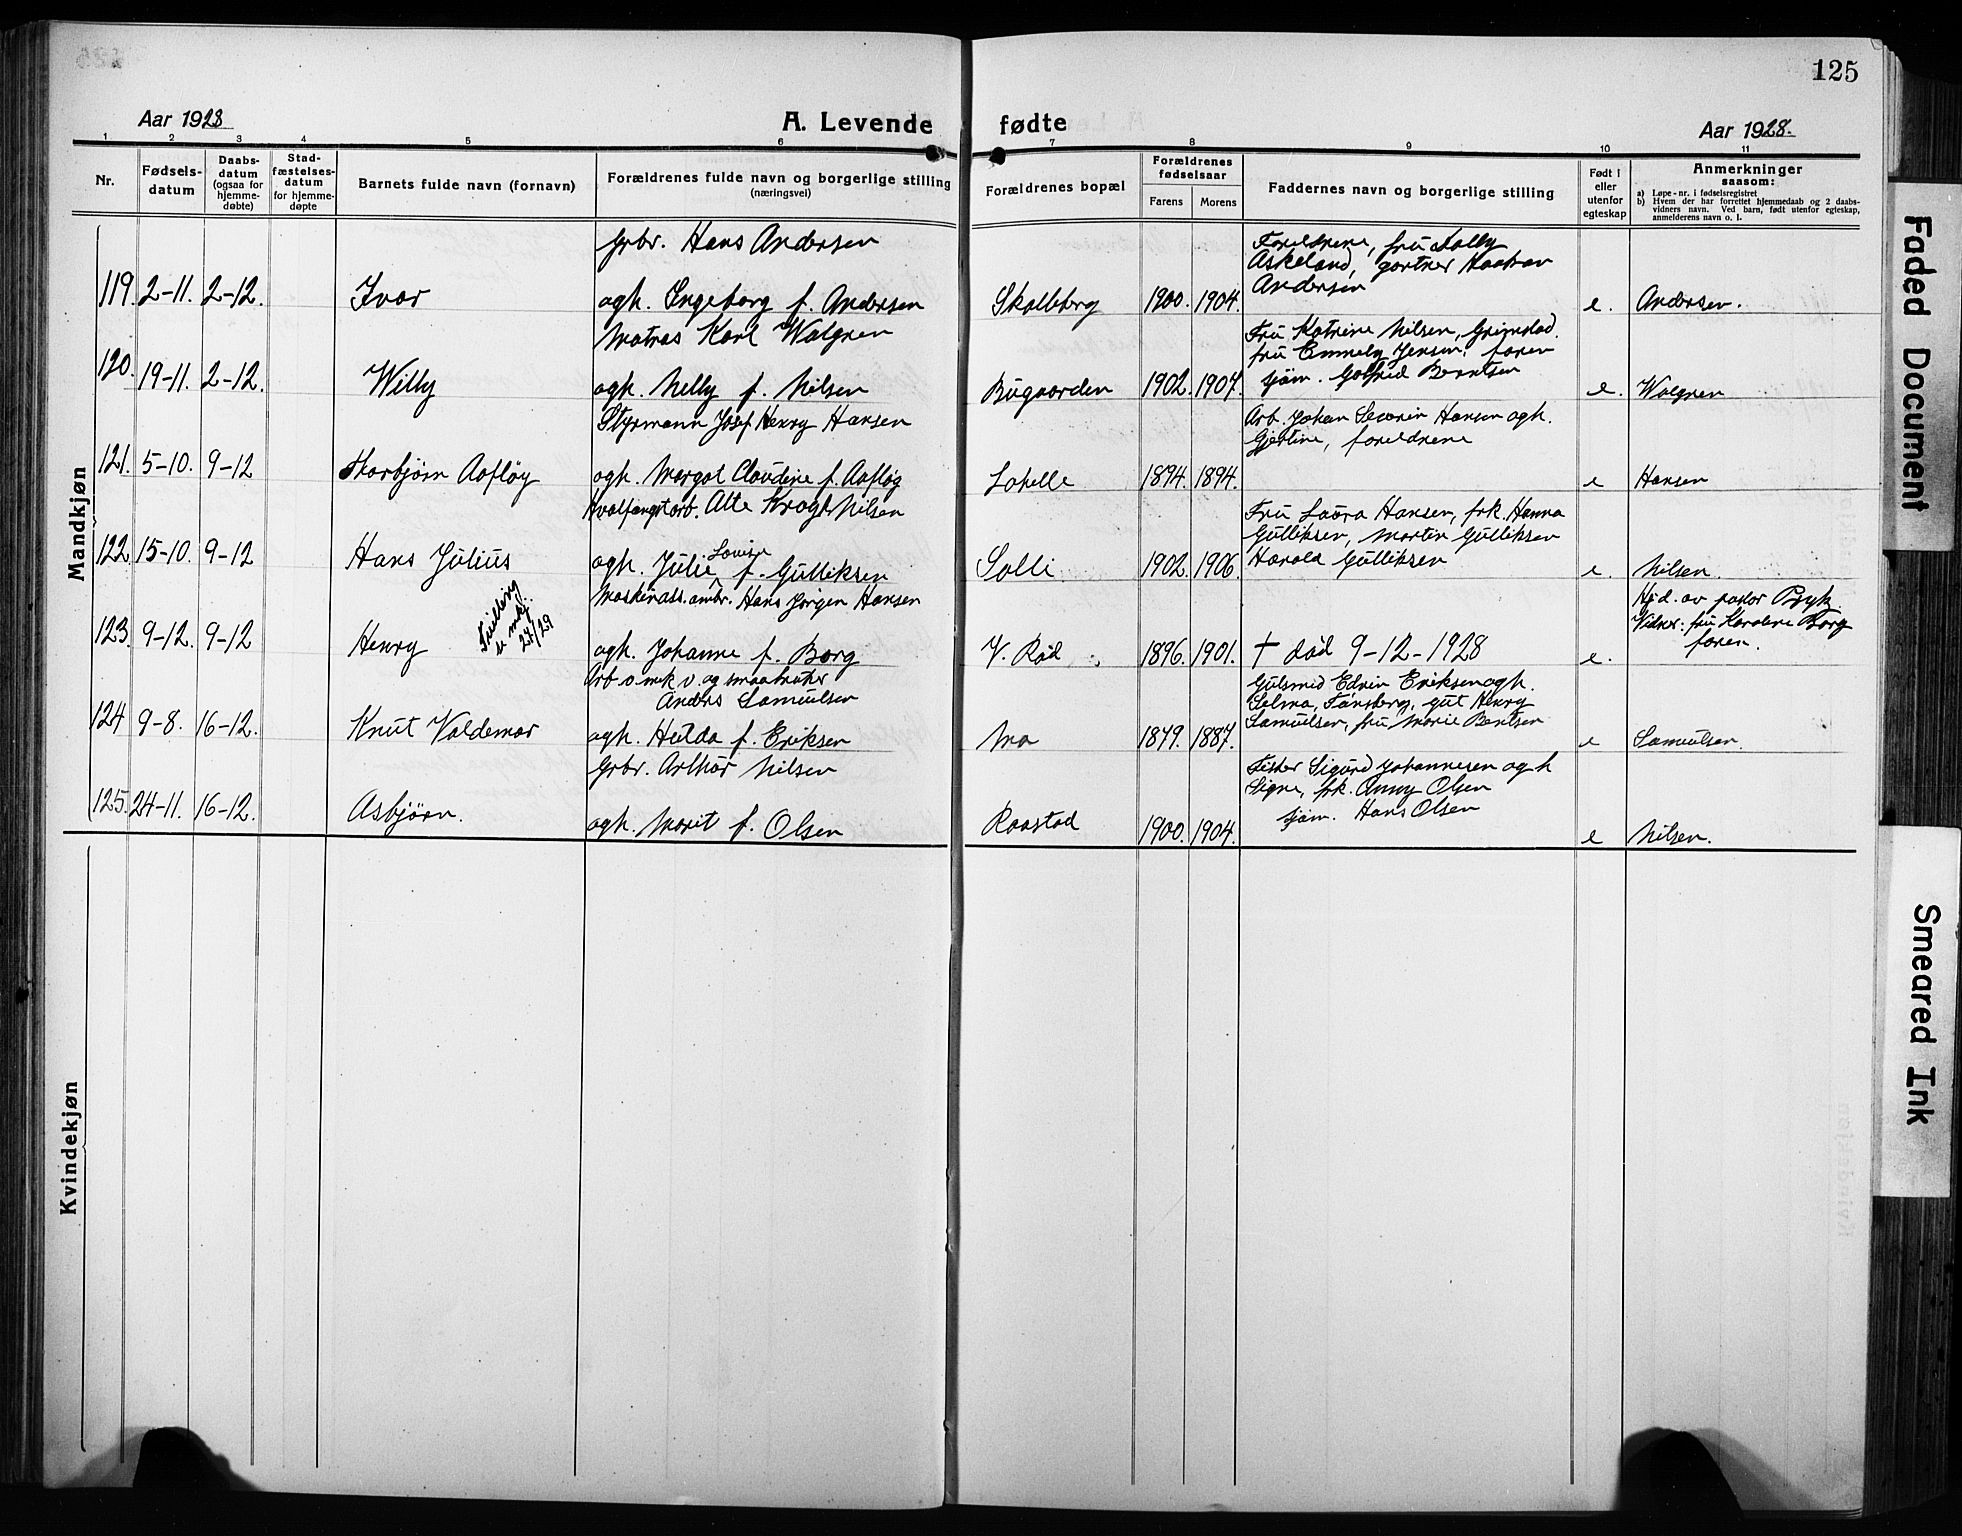 125
Aar 1928
A. Levende
fødte
Aar 1928.
1 2 3 4 5 6 7 8 9 10 11
Nr.
Fødsels-
datum
Daabs-
datum
(ogsaa for
hjemme-
døbte)
Stad-
fæstelses-
datum
for hjemme-
døpte
Barnets fulde navn (fornavn)
Forældrenes fulde navn og borgerlige stilling
(næringsvei)
Forældrenes bopæl
Forældrenes
fødselsaar
Farens
Morens
Faddernes navn og borgerlige stilling
Født i
eller
utenfor
egteskap
Anmerkninger
saasom:
a) Løpe-nr. i fødselsregistret
b) Hvem der har forrettet hjemmedaab og 2 daabs-
vidners navn. Ved barn, født utenfor egteskap,
anmelderens navn o. l.
Mandkjøn
Grbr. Hans Andersen
Foreldrene, fru
Askeland, gartner
Andersen
119. 2-11. 2-12. Ivar
ogh. Ingeborg f. Andersen
Skalleberg 1900. 1904.
e. Andersen.
Matros Karl Walgren
Fru Katrine Nilsen, Grimstad.
fru Emmely Jensen, faren
sjøm. Gotfred Berntsen
120. 19-11. 2-12. Willy
ogh. Nelly f. Nilsen
Bugaarden 1902. 1907.
e. Walgren
Styrmann Josef Henry Hansen
Arb. Johan Severin Hansen ogh.
Gjertine, foreldrene
121. 5-10. 9-12 Torbjørn Aafløy
ogh. Margot Claudine f. Aafløy
1894. 1894.
e Hansen
Hvalfangstarb. Atle Kragh Nilsen
Fru Laura Hansen, frk. Hanna
Gulliksen, Martin Gulliksen
Harald Gulliksen
122. 15-10. 9-12 Hans Julius
ogh. Julie Lovise f. Gulliksen
Solli 1902. 1906.
e. Nilsen.
Maskinass. ombr. Hans Jørgen Hansen
Hjd. av pastor Bryk
Vidner: fru Karoline Borg
faren.
123. 9-12. 9-12 Henry
Tvilling
27/29
ogh. Johanne f. Borg
V. Rød 1896. 1901. † død 9-12-1928
e.
Arb o. mek v. og smaabruker
Anders Samuelsen
Gulsmed Edvin Eriksen ogh.
Selma, Tønsberg, gut Henry
Samuelsen, fru Marie Bentsen
124 9-8. 16-12. Knut Valdemar
ogh. Hulda f. Eriksen
Mo 1879. 1887.
e Samuelsen.
Grbr. Arthur Nilsen
Fisker Sigurd Johannesen ogh
Signe, frk. Anny Olsen
sjøm. Hans Olsen
125. 24-11. 16-12. Asbjørn.
ogh. Marit f. Olsen
Raastad 1900. 1904.
e Nilsen.
Kvindekjøn
Faded Document
Smeared Ink